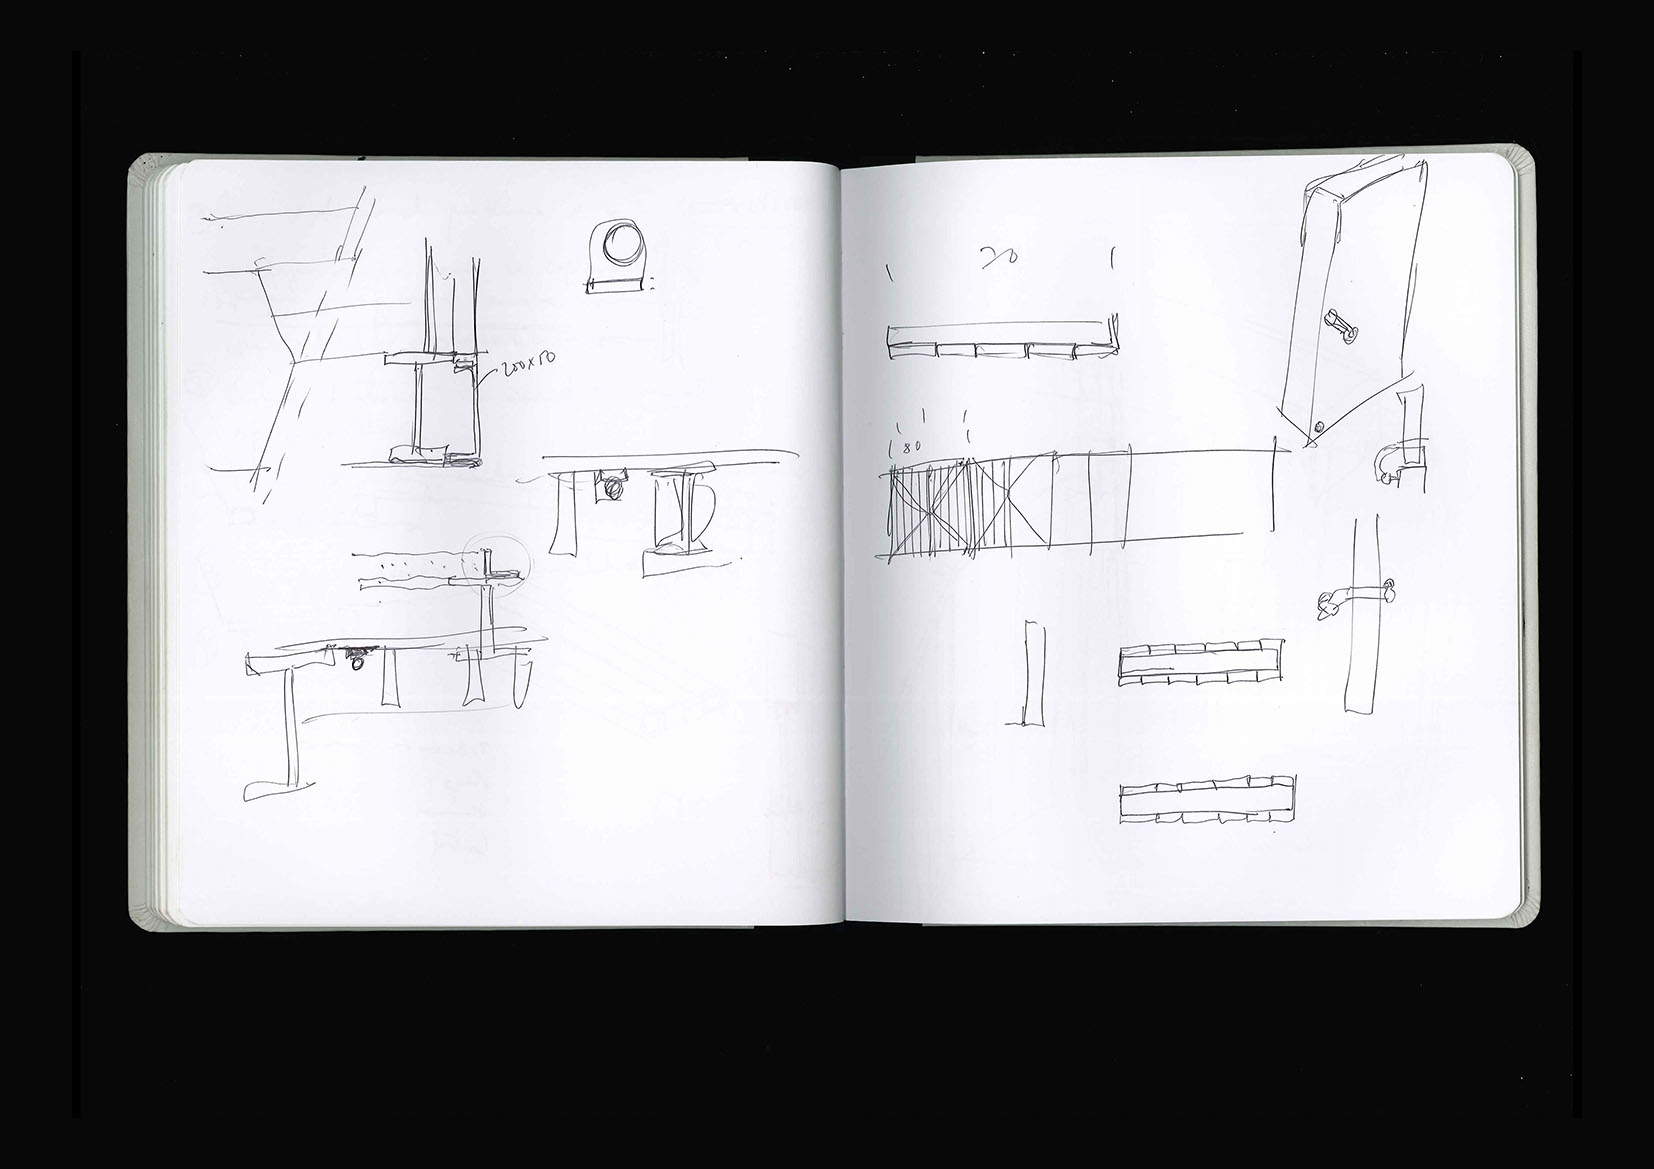 200x50
20
80